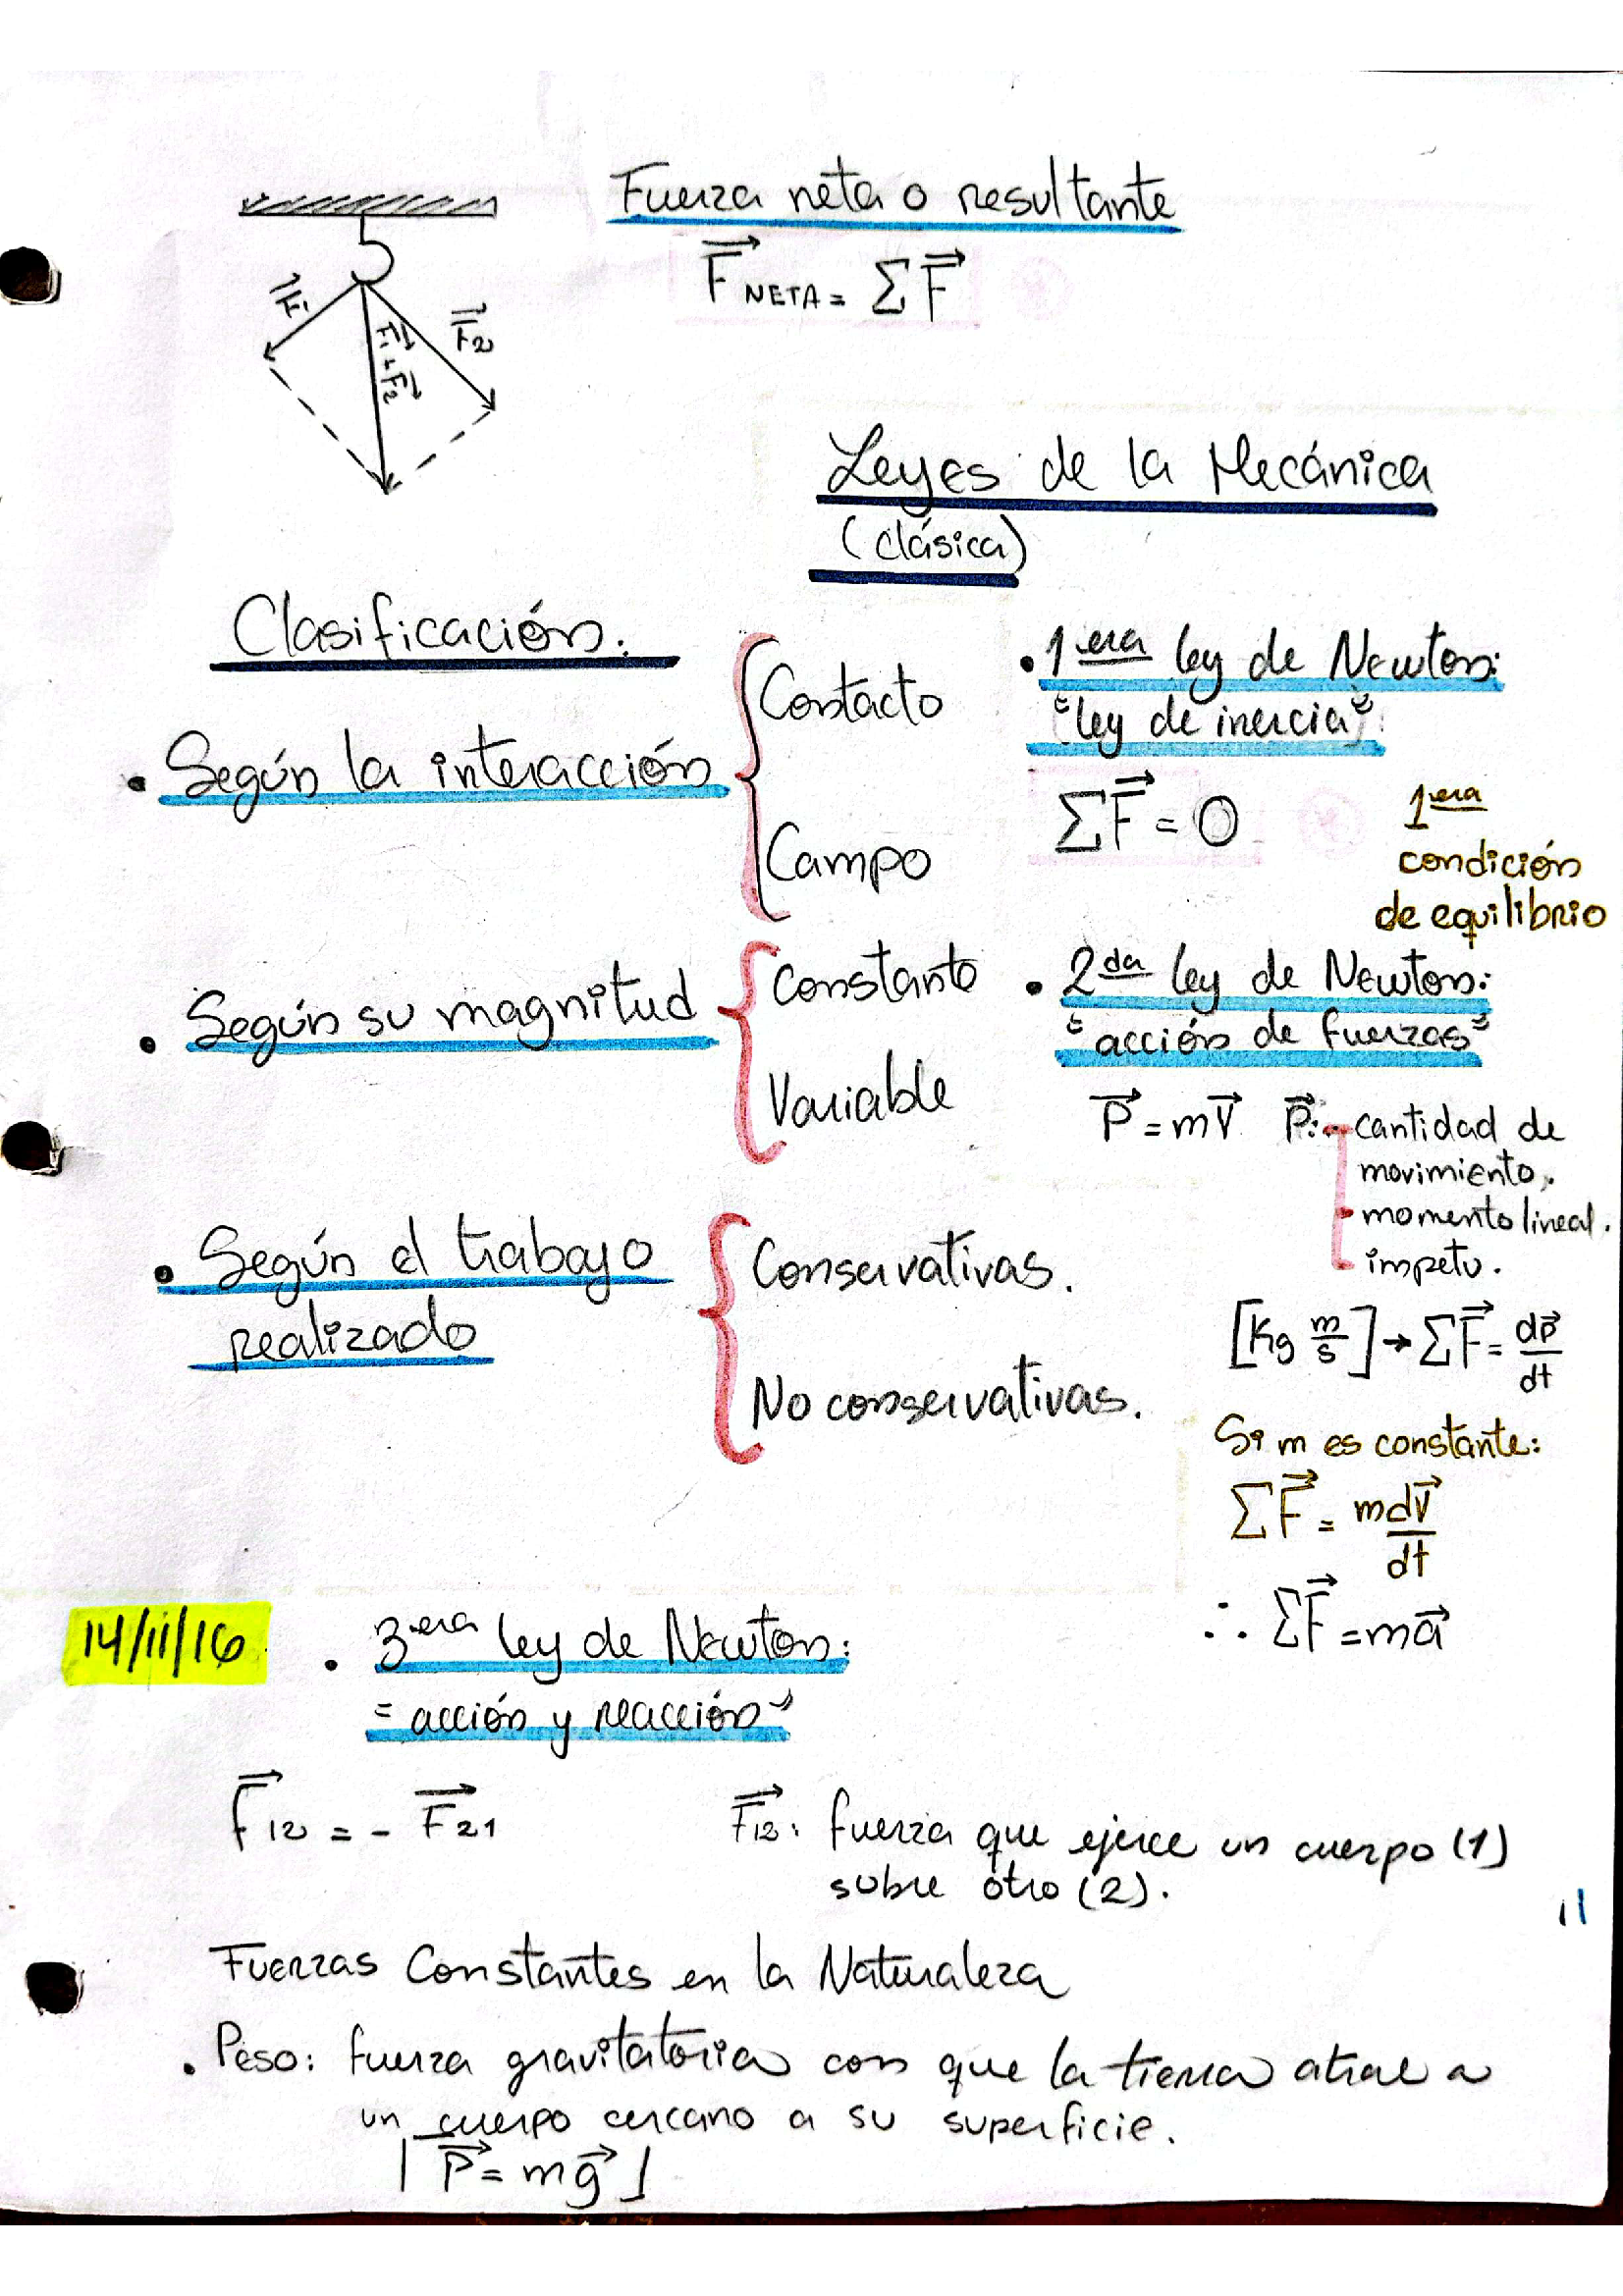 Fuerza neta o resultante
F⃗ NETA = Σ F⃗
F⃗1
F⃗1 + F⃗2
F⃗2
Leyes de la Mecánica
(clásica)
Clasificación:
• Según la interacción
Contacto
Campo
• Según su magnitud
Constante
Variable
• Según el trabajo
realizado
Conservativas.
No conservativas.
• 1era ley de Newton:
"ley de inercia"
ΣF⃗ = 0
1era
condición
de equilibrio
• 2da ley de Newton:
"acción de fuerzas"
P⃗ = mV⃗ P⃗: - cantidad de
movimiento.
- momento lineal.
- impetu.
[Kg m/s] → ΣF⃗ = dp⃗/dt
Si m es constante:
ΣF⃗ = mdV⃗/dt
∴ ΣF⃗ = ma⃗
14/11/16
• 3era ley de Newton:
"acción y reacción"
F⃗12 = - F⃗21
F⃗12: fuerza que ejerce un cuerpo (1)
sobre otro (2).
11
Fuerzas Constantes en la Naturaleza
• Peso: fuerza gravitatoria con que la tierra atrae a
un cuerpo cercano a su superficie.
P⃗ = mg⃗